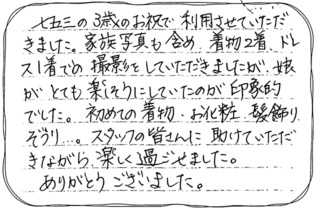 七五三の3歳のお祝で利用させていただ
きました。家族写真も含め 着物2着 ドレ
ス1着での 撮影をしていただきましたが、娘
が とても 楽しそうにしていたのが 印象的
でした。初めての着物・お化粧 髪飾り
ぞうり…。スタッフの皆さんに 助けていただ
きながら 楽しく過ごせました。
ありがとう ございました。